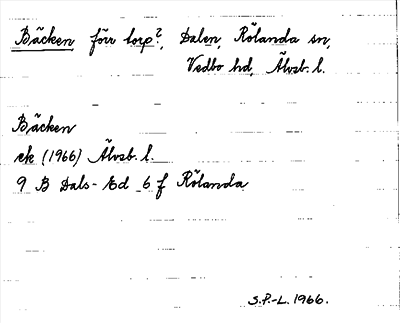 Bäcken förr torp?, Dalen, Rölanda sn,
Vedbo hd, Älvsb. l.
Bäcken
ek (1966) Älvsb. l.
9 B Dals-Ed 6 f Rölanda
S.P.-L. 1966.